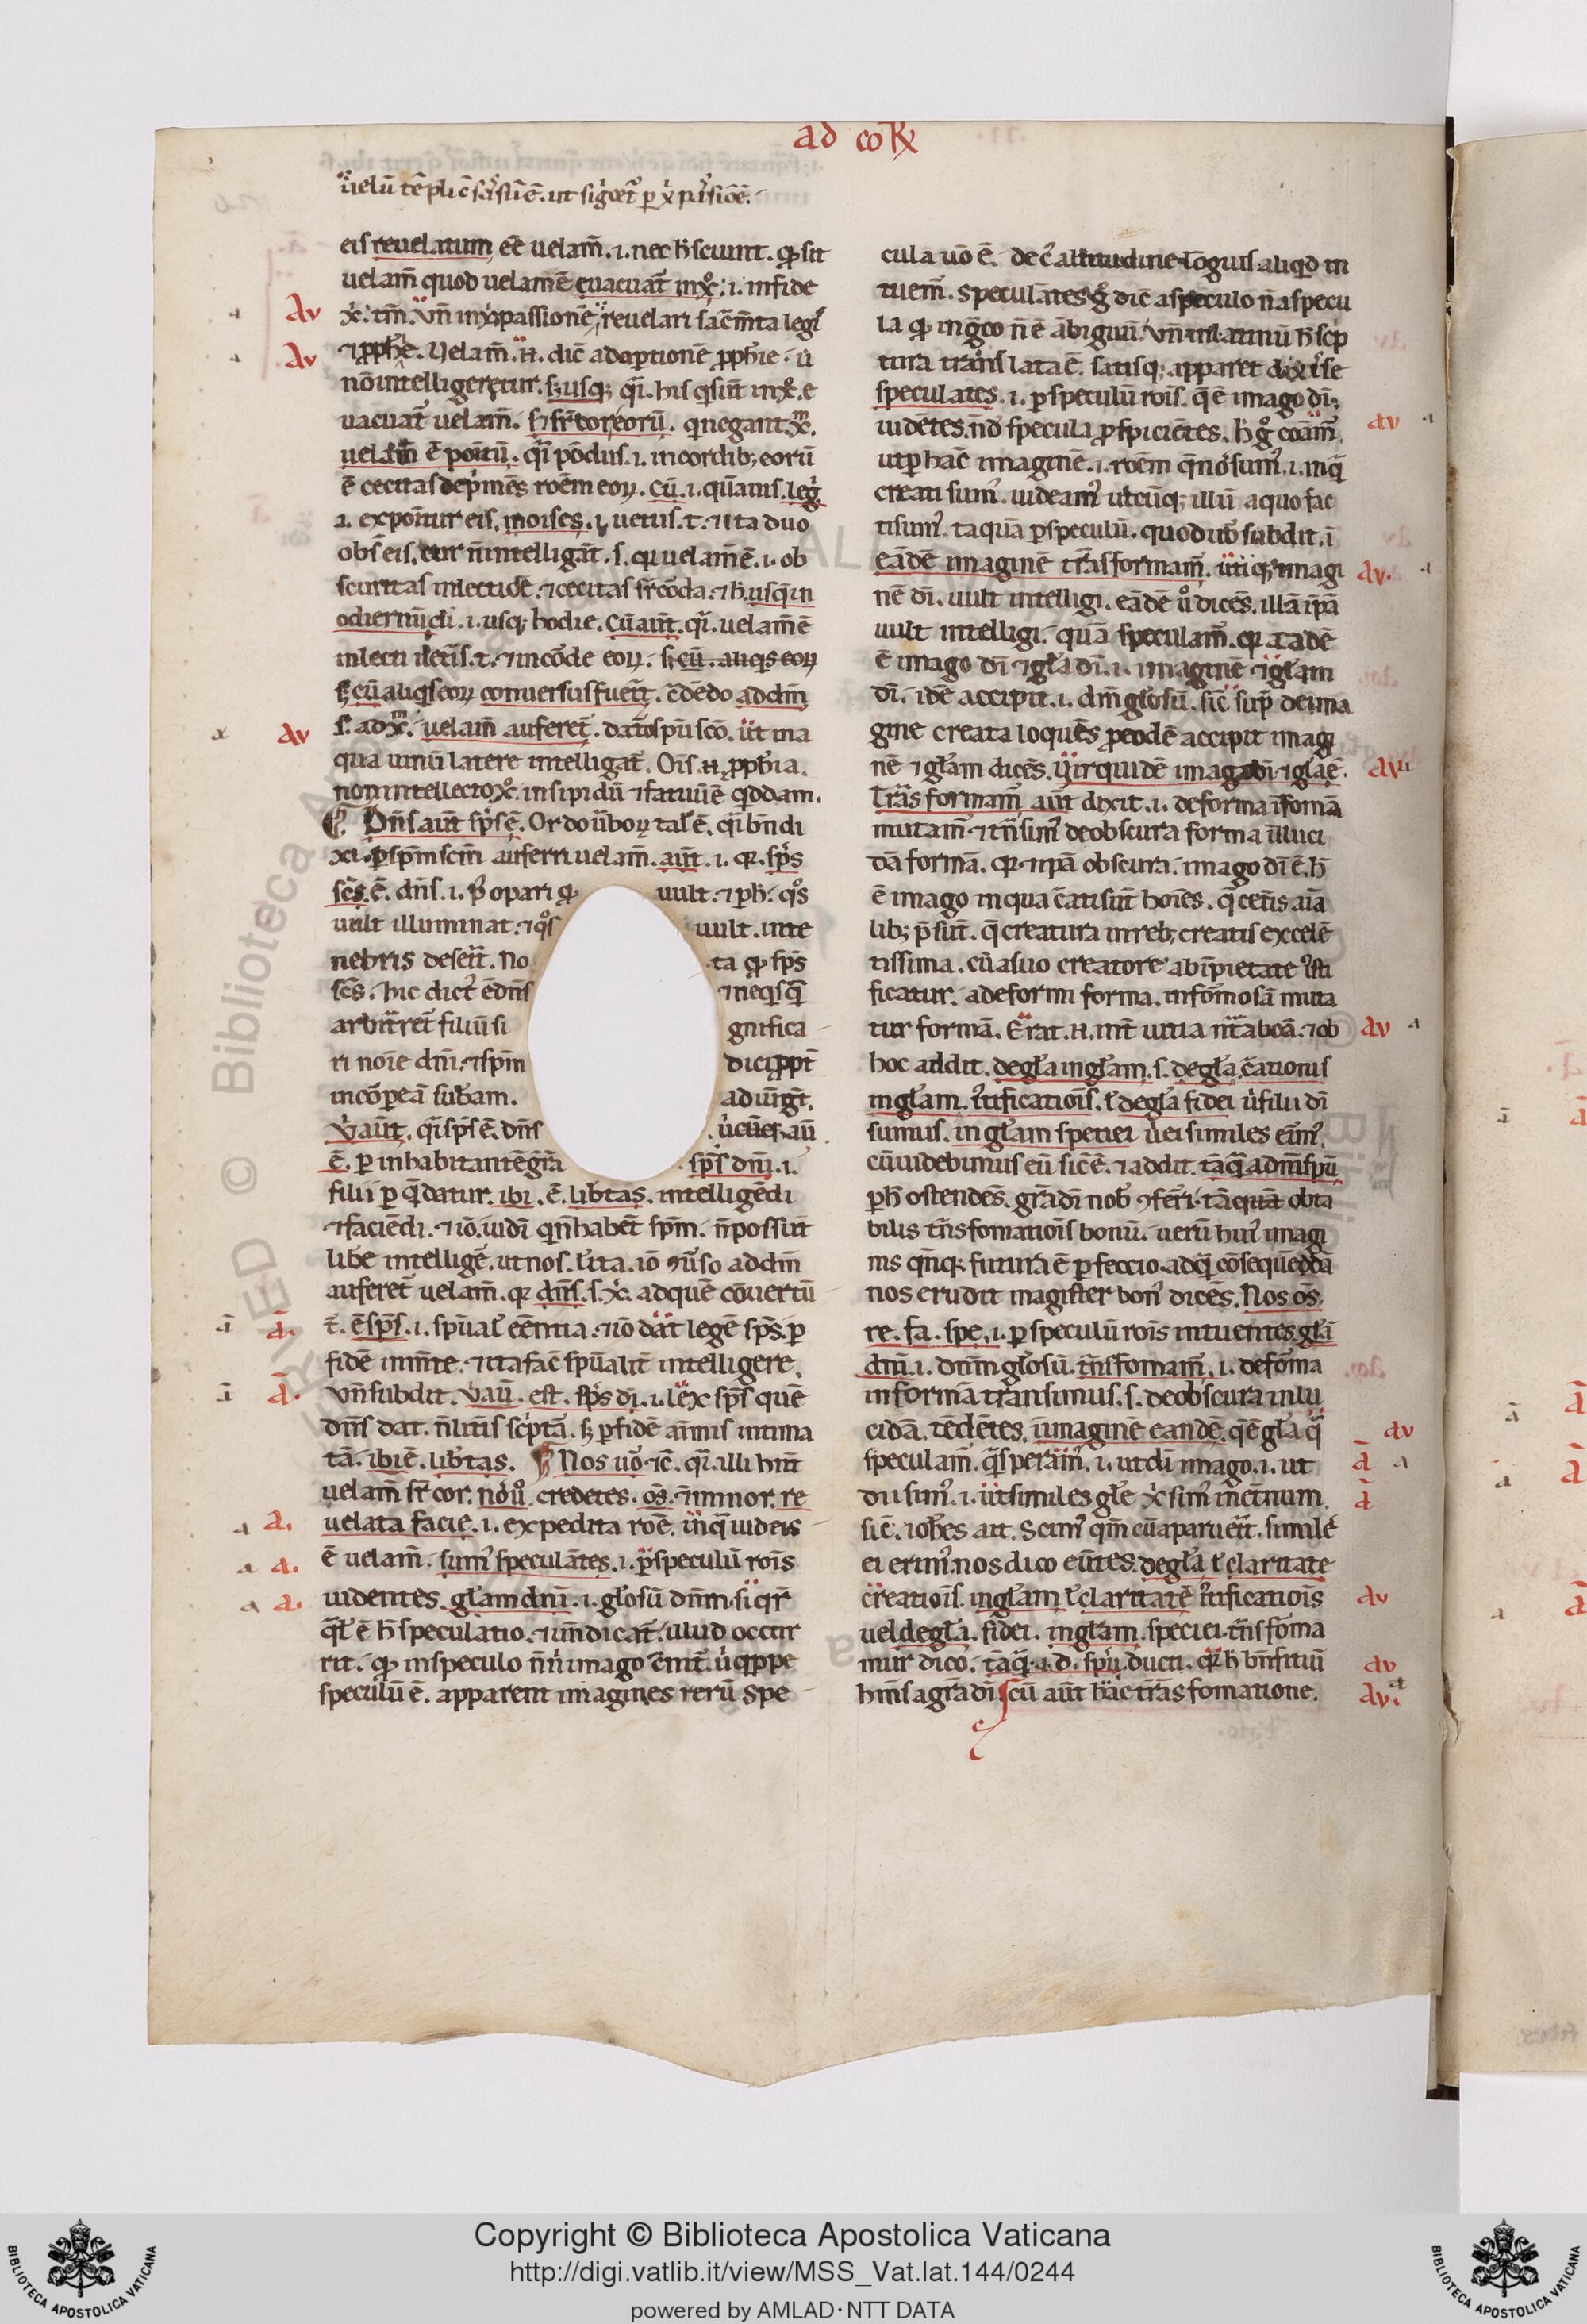 ad coR̄
uelū tēpli ē scīsū ē. ut siḡ
eis reuelatum eē uelam̄. .i. nec h̄ sciunt. qđ sit
uelam̄ quod uelam̄ ē euacuat̄ in xo. .i. in fide
x̄. tn̄. Vn̄ in x̄ passionē reuelari sac̄m̄ta leḡ
⁊ pph̄e. Uelam̄ .n. dic̄ adoptionē pph̄ie. ū
nō intelligeretur. s; usq; q̄. his q̄ sūt in x̄. e
uacuat̄ uelam̄. s; sr̄ cor eorū. qi negant x̄.
uelam̄ ē poītū. q̄. pōdus. .i. in cordib; eorū
ē cecitas dep̄mēs roēm eoꝝ. cū .i. quāuis. leḡ
.i. exponitur eis. moises. .i. uetus. t. ⁊ ita duo
obs̄ eis. cur n̄ intelligāt. s. q̄ uelam̄ ē. .i. ob
scuritas in lectiōe. ⁊ cecitas sr̄ corda. ⁊ h̄. usq̄ in
odiernū di. .i. usq; hodie. Cū aūt. q̄. uelam̄ ē
in lectī uet̄is. t. ⁊ in corde eoꝝ. s; cū. aliq̄s eoꝝ
s; cū aliq̄s eoꝝ conuersus fuerit. c̄dēdo ad dm̄
s. ad x̄. uelam̄ auferet̄. dato spū scō. ut in a
qua uinū latere intelligat̄. Oīs .n. pph̄ia.
non intellecto x̄o. insipidū ⁊ fatuū ē qđdam.
¶ Dn̄s aūt sp̄s ē. Ordo ūboꝝ tal̄ ē. q̄. bn̄ di
xi. p sp̄m scm̄ auferri uelam̄. aūt. .i. q̄. sp̄s
sc̄s. ē. dn̄s. .i. p̄ opari qđ uult. ⁊ p h̄. q̄s
uult illuminat. ⁊ q̄s uult. in te
nebris deserit. No ta qđ sp̄s
sc̄s. hic dicit̄ ē dn̄s ⁊ ne q̄sq̄
arbitret̄ filiū si gnifica
ri noīe dn̄i. ⁊ sp̄m dici ppt̄
incorpeā sub̄am. adiūgit.
V̄ aūt. q̄. sp̄s ē. dn̄s
ē. p inhabitantē gr̄a sp̄s dn̄i. .i.
filii p q̄ datur. ibi. ē. lib̄tas. intelligēdi
⁊ faciēdi. ⁊ iō. iudi qi n̄ habēt sp̄m. n̄ possūt
lib̄e intelliḡe. ut nos. l̄ ita. iō ꝯūso ad dm̄
auferet̄ uelam̄. q̄ dn̄s. s. x̄. ad quē conuertū
t̄. ē sp̄s. .i. sp̄ual̄ eēntia. ⁊ iō dat legē sp̄s. p
fidē in mēte. ⁊ ita fac̄ sp̄ualit̄ intelligere.
Vn̄ subdit. V̄ aū. est. sp̄s dī. .i. lex sp̄s quē
dn̄s dat. n̄ litt̄is sc̄ptā. s; p fidē aīmis intima
tā. ibi ē. lib̄tas. ¶ Nos uō. ⁊c̄. q̄. illi hn̄t
uelam̄ sr̄ cor. nos uō credētes. om̄s. ⁊ minor. re
uelata facie. .i. expedita roē. in q̄ iudeis
ē uelam̄. sum̄ speculātes. .i. p speculū rōis
uidentes. gl̄am dn̄i. .i. gl̄osū dn̄m. si q̄r̄
q̄l̄ ē h̄ speculatio. ⁊ un̄ dicat̄. illud occur
rit. qđ in speculo n̄ nī imago c̄nit̄.
speculū ē. apparent imagines rerū. Spe
cula uō ē. de cuī altitudine longius aliqđ in
tuem̄. Speculātes g̊ dic̄ a speculo n̄ a specu
la qđ in ḡco n̄ ē ābiguū. Vn̄ in latinū h̄ sc̄p
tura translata ē. satisq; apparet dixisse
speculates. .i. p speculū rōis. q̄ ē imago dī.
uidētes. nō specula p̄spiciētes. h̄ g̊ coām̄.
ut p hāc imaginē. .i. roēm q̄ nos sum̄. .i. in q̄
creati sum̄. uideam̄ utcūq; illū a quo fac
ti sum̄. taquā p speculū. quod ub̄ subdit. i
eādē imaginē trāsformam̄. utiq; imagi
nē dī. uult intelligi. eādē uō dicēs. illā ip̄ā
uult intelligi. quā speculam̄. q̄ eadē
ē imago dī ⁊ gl̄a dī. .i. imaginē ⁊ gl̄am
dī. idē accipit. .i. dm̄ gl̄osū. sic̄ sup̄ de ima
gine creata loquēs p eodē accipit imagi
nē ⁊ gl̄am dicēs. Uir quidē imago dī ⁊ gl̄a ē.
Trāsformam̄ aūt dixit. .i. de forma ī formā
mutam̄. ⁊ tn̄simꝰ de obscura forma ī luci
dā formā. q̄ ⁊ ip̄a obscura. imago dī ē. h̄
ē imago in qua c̄ati sūt hoīes. q̄ cet̄is aīa
lib; p̄ sūt. q̄ creatura in reb; creatis excelē
tissima. cū a suo creatore ab ip̄ietate iusti
ficatur. a deformi forma. in formosā muta
tur formā. Erat .n. int̄ uitia nat̄a bona. ⁊ ob
hoc addit. de gl̄a in gl̄am. s. de gl̄a c̄ationis
in gl̄am. iustificatiōis. l̄ de gl̄a fidei ū filii dī
sumus. in gl̄am speciei ū ei similes erim̄.
cū uidebimus eū sic̄ ē. ⁊ addit. tāq̄ a dn̄i spū
p h̄ ostendēs. gr̄a dī nob̄ ꝯferri tāquā obta
bilis tn̄sformatiōis bonū. uerū huī imagi
nis qn̄q; futura ē p feccio. ad q̄ consequēdā
nos erudit magister bonꝰ dicēs. Nos om̄s.
re. fa. spe. .i. p speculū rōis intuentes. gl̄a
dn̄i .i. dn̄m gl̄osū. tn̄sformam̄. .i. de forma
in formā transimus. s. de obscura in lu
cidā. tēdētes. in imaginē eandē. q̄ ē gl̄a q̄
speculam̄. q̄ speram̄. .i. ut dī imago. .i. ut
dii sim̄. .i. ut similes gl̄e x̄ sim̄ in et̄num.
sic̄. ioh̄es ait. Scim̄ qm̄ cū aparuerit. simile
ei erim̄. nos dico eūtes. de gl̄a l̄ claritate
creatiōis. in gl̄am l̄ claritatē iustificatiōis
uel de gl̄a. fidei. in gl̄am. speciei. tn̄sforma
mur dico. tāq̄. a. d. spū. ducti. q̄ h̄ bn̄fitiū
hm̄s a gr̄a dī cū aūt hac trāsformatione.
Copyright © Biblioteca Apostolica Vaticana
http://digi.vatlib.it/view/MSS_Vat.lat.144/0244
powered by AMLAD·NTT DATA